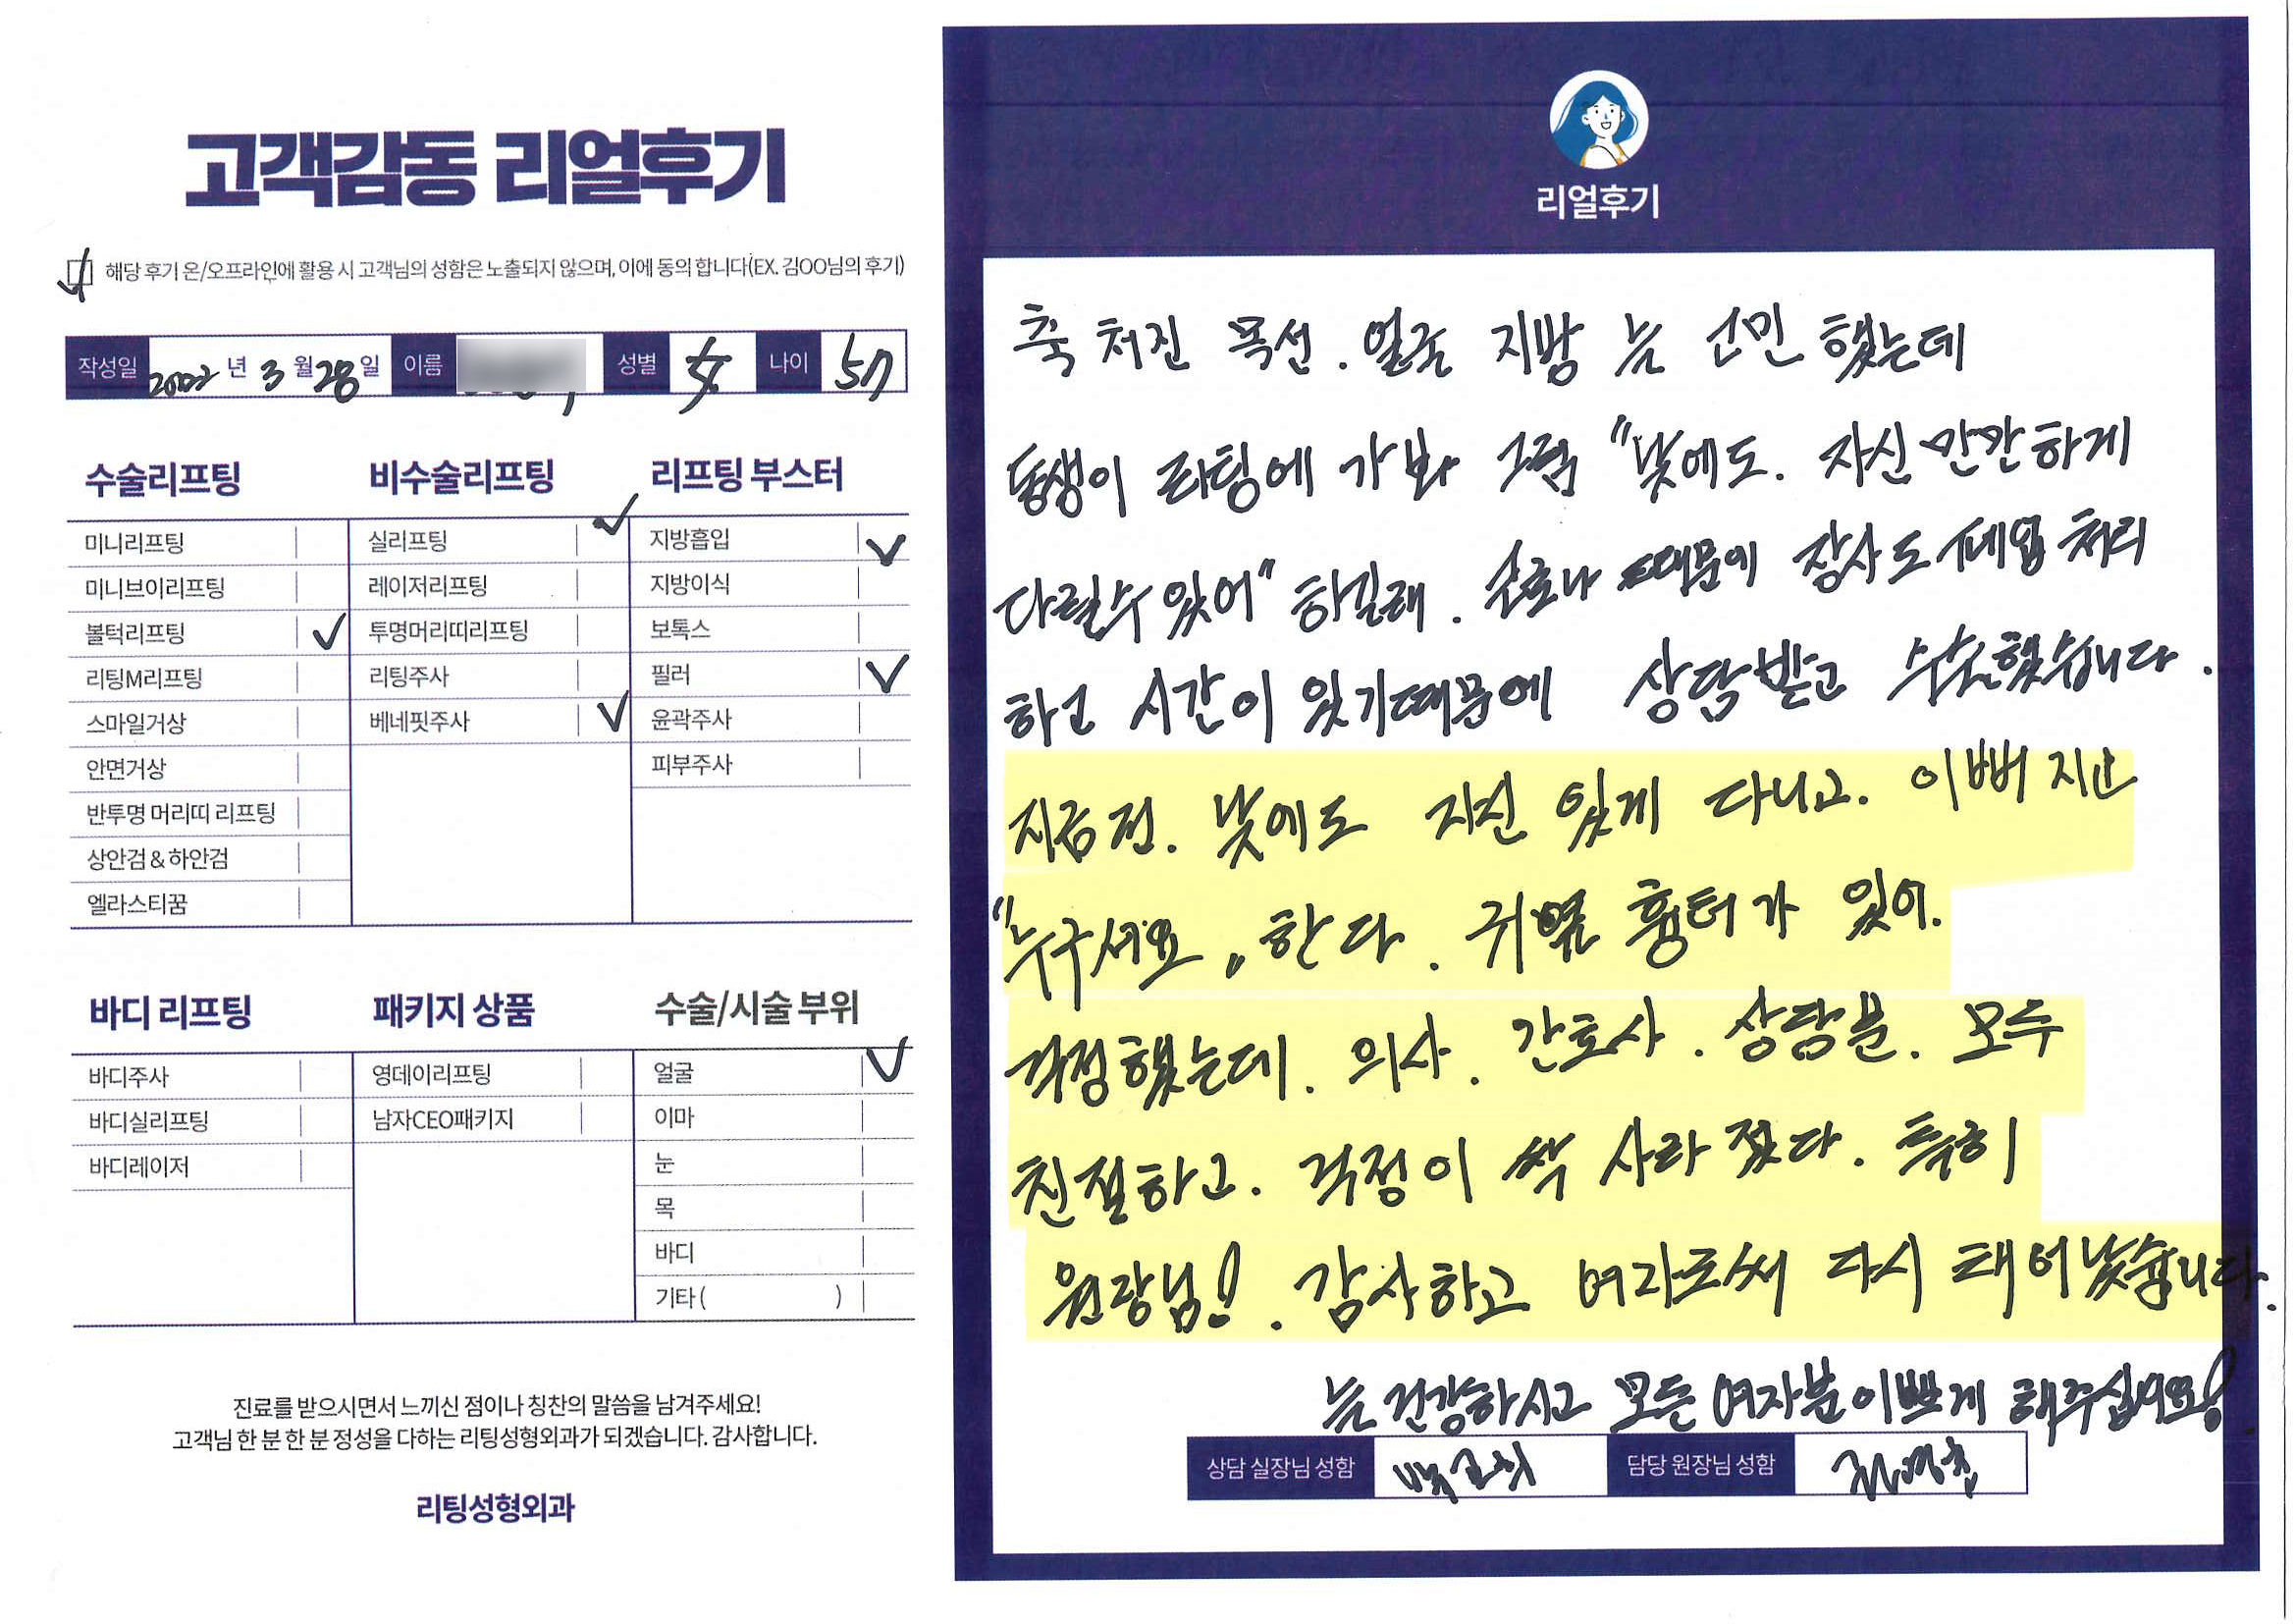 고객감동 리얼후기
해당 후기 온/오프라인에 활용 시 고객님의 성함은 노출되지 않으며, 이에 동의 합니다(EX. 김OO님의 후기)
작성일 2022 년 3 월 28 일 이름 성별 女 나이 57
수술리프팅
미니리프팅
미니브이리프팅
볼턱리프팅
리팅M리프팅
스마일거상
안면거상
반투명 머리띠 리프팅
상안검 & 하안검
엘라스티꿈
비수술리프팅
실리프팅
레이저리프팅
투명머리띠리프팅
리팅주사
베네핏주사
리프팅 부스터
지방흡입
지방이식
보톡스
필러
윤곽주사
피부주사
바디 리프팅
바디주사
바디실리프팅
바디레이저
패키지 상품
영데이리프팅
남자CEO패키지
수술/시술 부위
얼굴
이마
눈
목
바디
기타 ( )
진료를 받으시면서 느끼신 점이나 칭찬의 말씀을 남겨주세요!
고객님 한 분 한 분 정성을 다하는 리팅성형외과가 되겠습니다. 감사합니다.
리팅성형외과
리얼후기
축 처진 목선. 얼굴 지방 는 고민 했는데
동생이 리팅에 가봐 그럼 "낮에도. 자신만만하게
다닐수 있어" 하길래. 코로나 때문에 장사도 폐업 처리
하고 시간이 있기때문에 상담받고 수술했습니다.
지금전. 낮에도 자신 있게 다니고. 이뻐지고
"누구세요" 한다. 귀옆 흉터가 있어.
걱정했는데. 의사. 간호사. 상담분. 모두
친절하고. 걱정이 싹 사라졌다. 특히
원장님!. 감사하고 여자로써 다시 태어났습니다.
늘 건강하시고 모든 여자분 이쁘게 해주십시요!
상담 실장님 성함
담당 원장님 성함